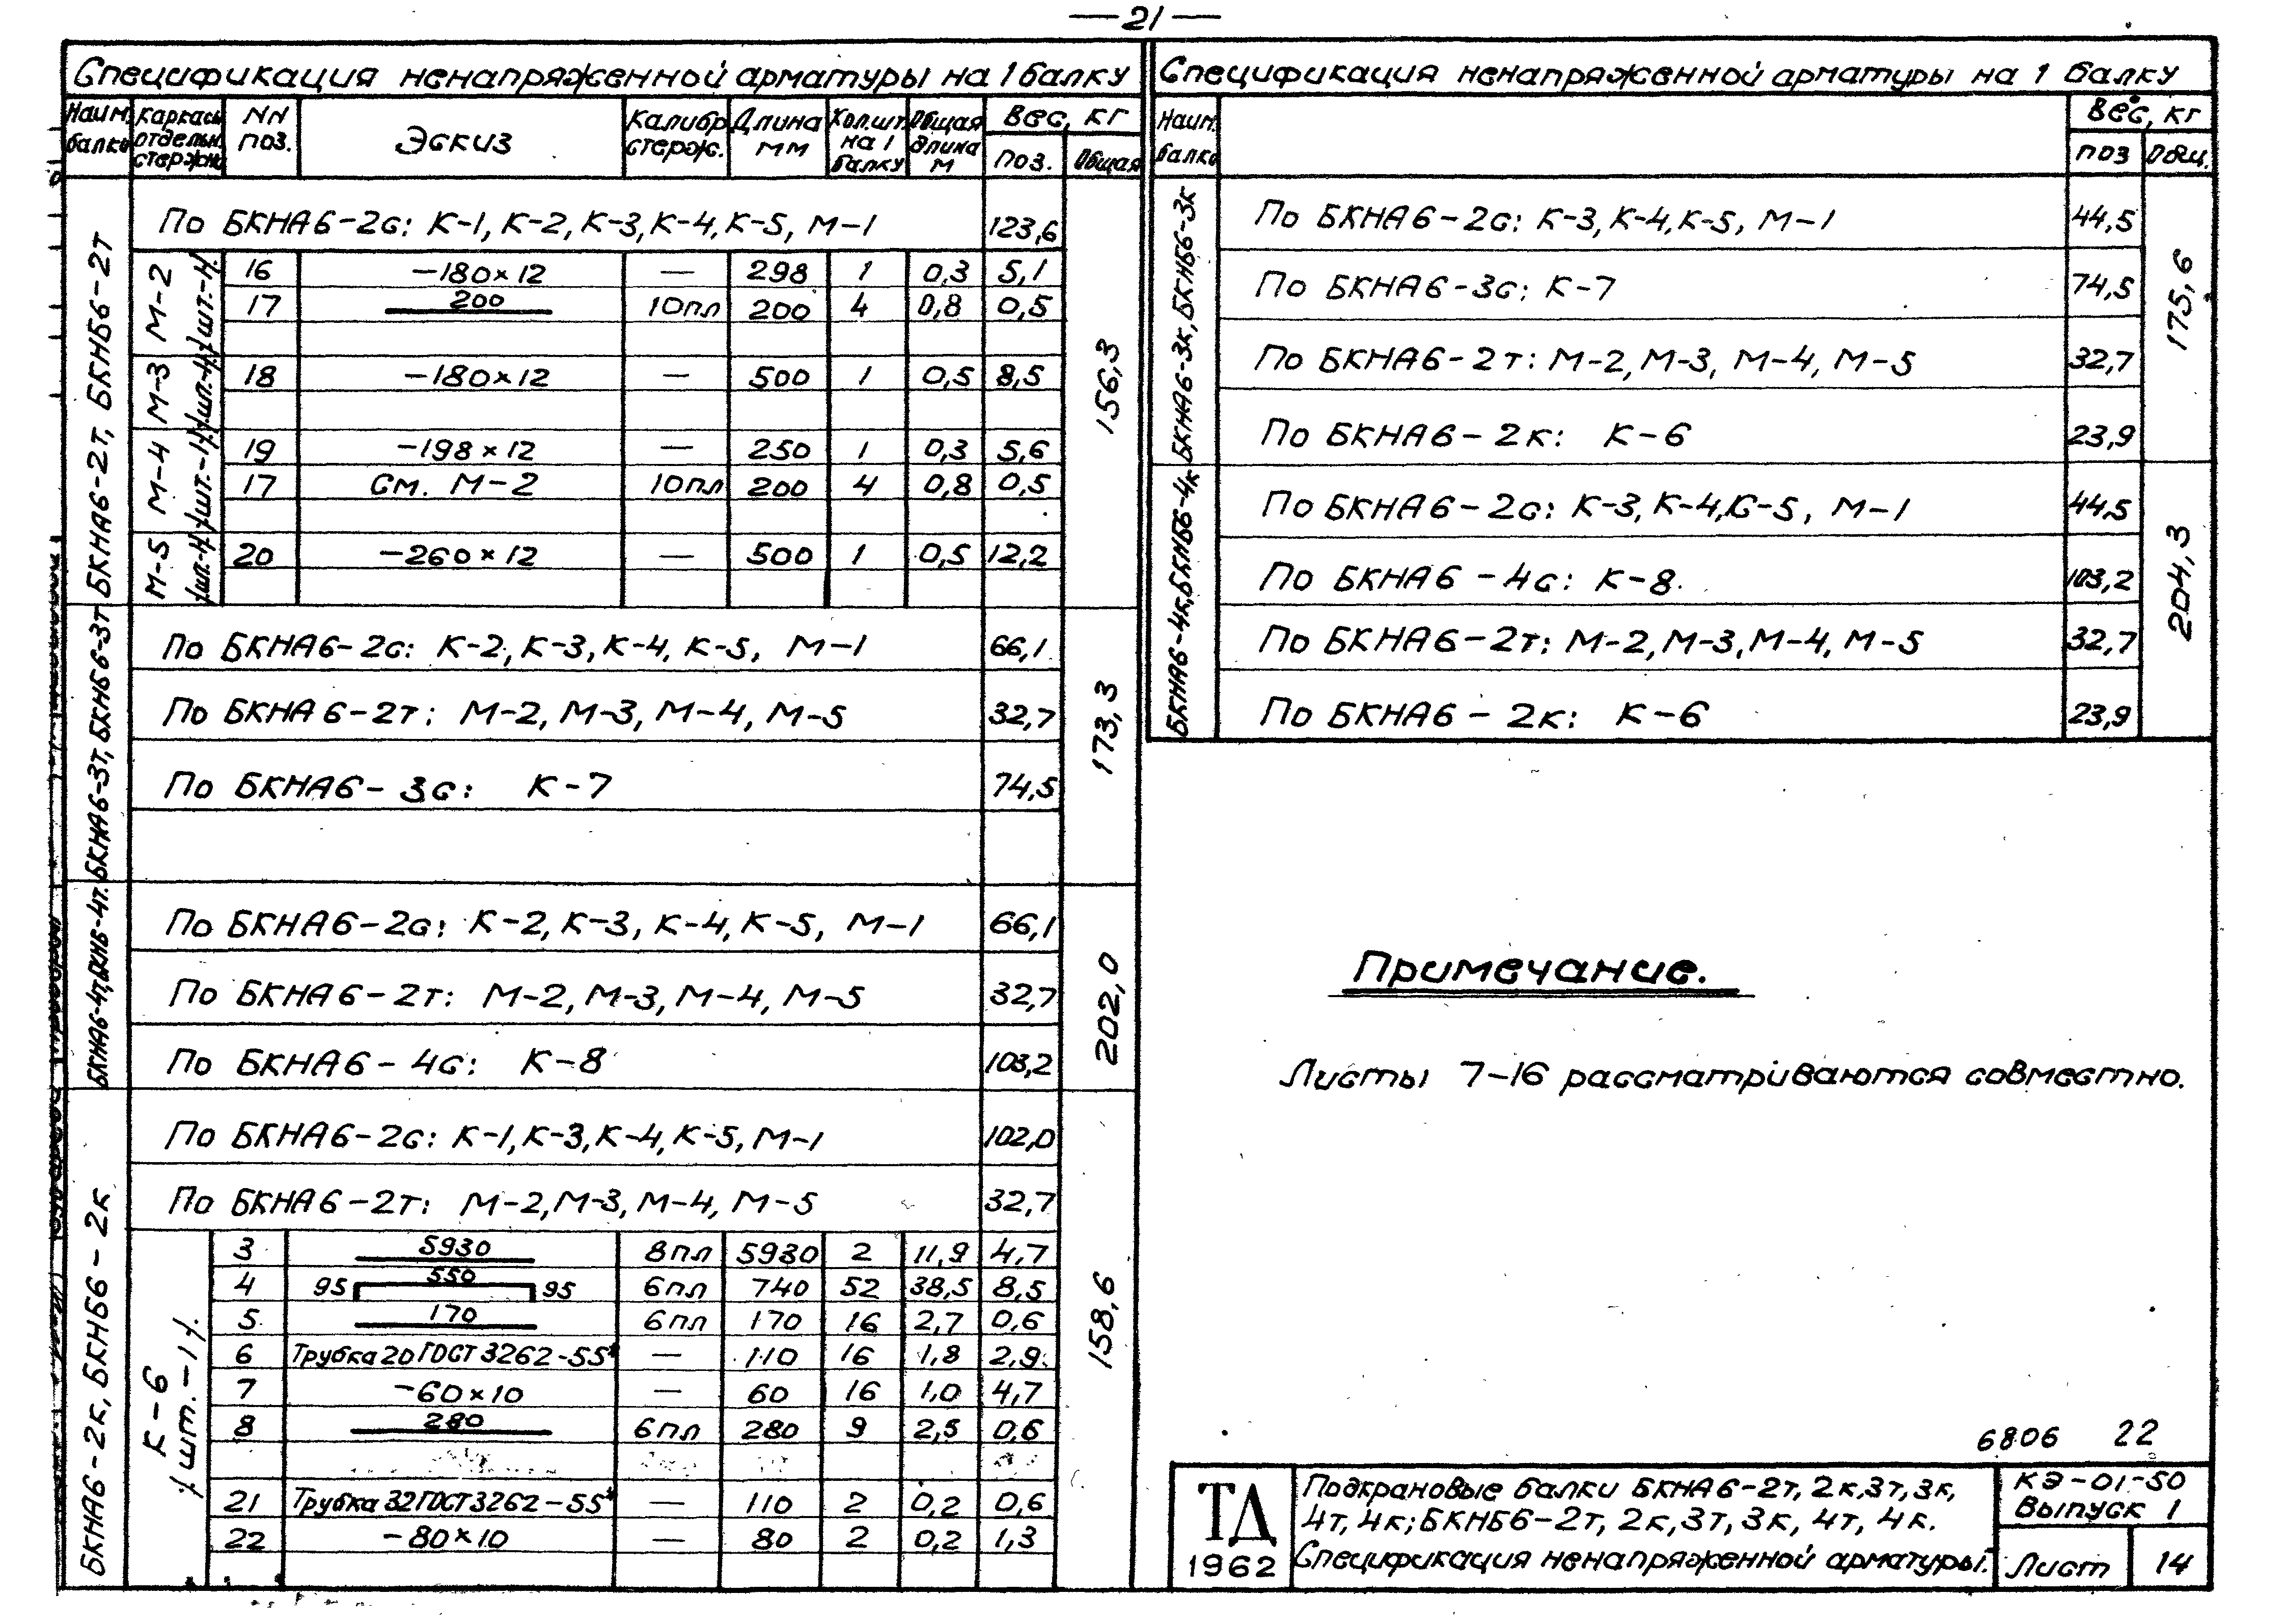 — 21 —
Спецификация ненапряженной арматуры на 1 балку
Наим. балки | Каркасы отдельн. стержни | NN поз. | Эскиз | Калибр стерж. | Длина мм | Кол.шт. на 1 балку | Общая длина м | Вес, кг
поз. | Общая
БКНА6-2т, БКНБ6-2т
По БКНА6-2с: К-1, К-2, К-3, К-4, К-5, М-1 | 123,6 | 156,3
М-2 /шт.-1/
16 | -180×12 | — | 298 | 1 | 0,3 | 5,1
17 | 200 | 10пл | 200 | 4 | 0,8 | 0,5
М-3 /шт.-1/
18 | -180×12 | — | 500 | 1 | 0,5 | 8,5
М-4 /шт.-1/
19 | -198×12 | — | 250 | 1 | 0,3 | 5,6
17 | См. М-2 | 10пл | 200 | 4 | 0,8 | 0,5
М-5 /шт.-1/
20 | -260×12 | — | 500 | 1 | 0,5 | 12,2
БКНА6-3т, БКНБ6-3т
По БКНА6-2с: К-2, К-3, К-4, К-5, М-1 | 66,1 | 173,3
По БКНА6-2т: М-2, М-3, М-4, М-5 | 32,7
По БКНА6-3с: К-7 | 74,5
БКНА6-4т, БКНБ-4т.
По БКНА6-2с: К-2, К-3, К-4, К-5, М-1 | 66,1 | 202,0
По БКНА6-2т: М-2, М-3, М-4, М-5 | 32,7
По БКНА6-4с: К-8 | 103,2
БКНА6-2к, БКНБ6-2к
По БКНА6-2с: К-1, К-3, К-4, К-5, М-1 | 102,0 | 158,6
По БКНА6-2т: М-2, М-3, М-4, М-5 | 32,7
К-6 /шт.-1/.
3 | 5930 | 8пл | 5930 | 2 | 11,9 | 4,7
4 | 95 550 95 | 6пл | 740 | 52 | 38,5 | 8,5
5 | 170 | 6пл | 170 | 16 | 2,7 | 0,6
6 | Трубка 20 ГОСТ 3262-55* | — | 110 | 16 | 1,8 | 2,9
7 | -60×10 | — | 60 | 16 | 1,0 | 4,7
8 | 280 | 6пл | 280 | 9 | 2,5 | 0,6
21 | Трубка 32 ГОСТ 3262-55* | — | 110 | 2 | 0,2 | 0,6
22 | -80×10 | — | 80 | 2 | 0,2 | 1,3
Спецификация ненапряженной арматуры на 1 балку
Наим. балки | Вес, кг
поз | Общ.
БКНА6-3к, БКНБ6-3к
По БКНА6-2с: К-3, К-4, К-5, М-1 | 44,5 | 175,6
По БКНА6-3с: К-7 | 74,5
По БКНА6-2т: М-2, М-3, М-4, М-5 | 32,7
По БКНА6-2к: К-6 | 23,9
БКНА6-4к, БКНБ6-4к
По БКНА6-2с: К-3, К-4, К-5, М-1 | 44,5 | 204,3
По БКНА6-4с: К-8. | 103,2
По БКНА6-2т: М-2, М-3, М-4, М-5 | 32,7
По БКНА6-2к: К-6 | 23,9
Примечание.
Листы 7-16 рассматриваются совместно.
6806 22
ТД
1962
Подкрановые балки БКНА6-2т, 2к, 3т, 3к,
4т, 4к; БКНБ6-2т, 2к, 3т, 3к, 4т, 4к.
Спецификация ненапряженной арматуры.
КЭ-01-50
Выпуск 1
Лист 14